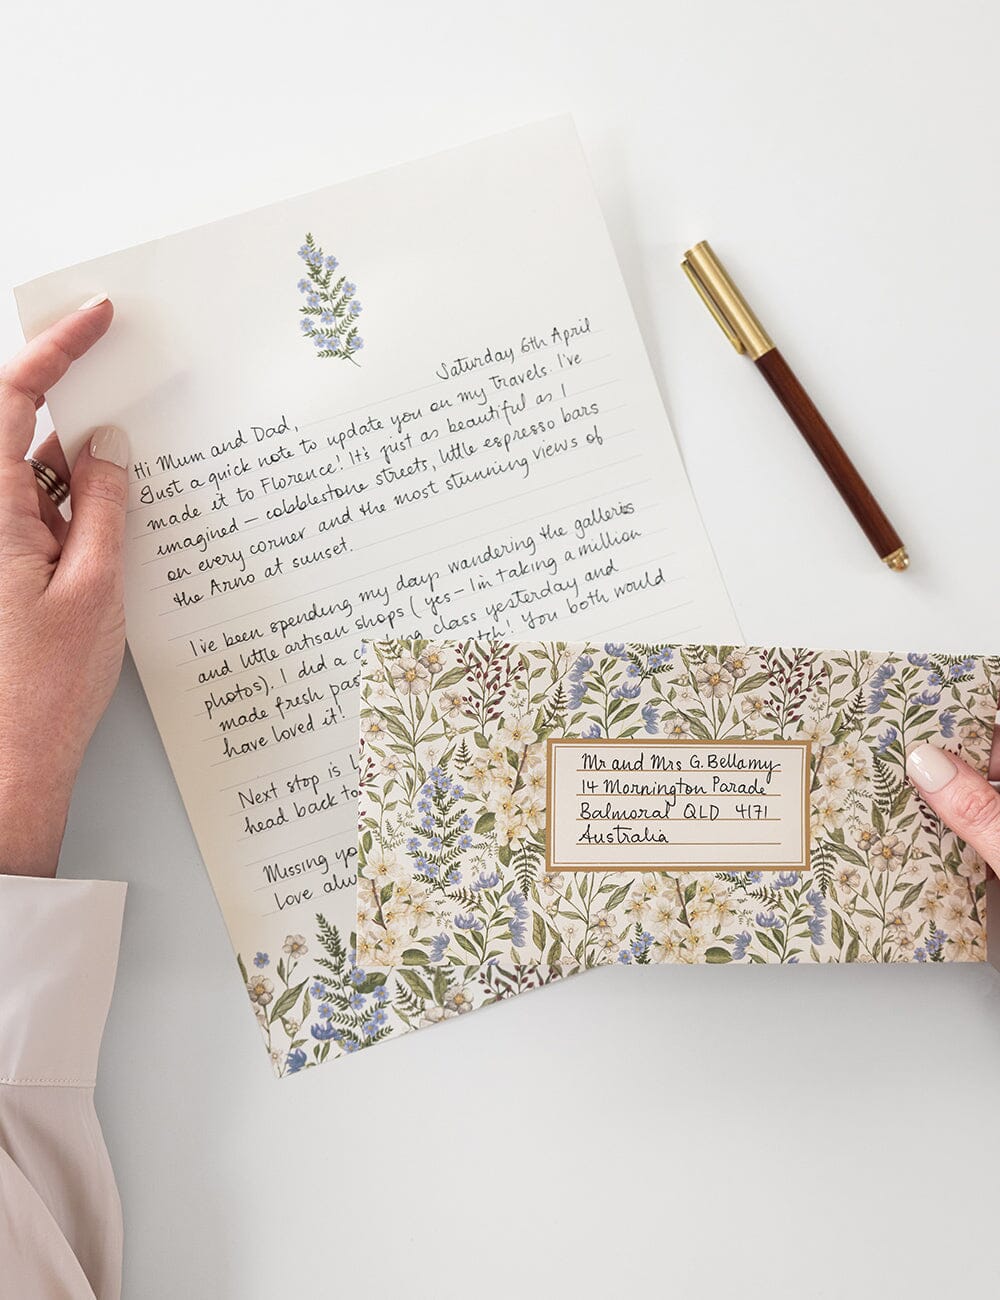 Saturday 6th April
Hi Mum and Dad,
Just a quick note to update you on my travels. I've
made it to Florence! It's just as beautiful as I
imagined – cobblestone streets, little espresso bars
on every corner and the most stunning views of
the Arno at sunset.
I've been spending my days wandering the galleries
and little artisan shops (yes – I'm taking a million
photos). I did a class yesterday and
made fresh You both would
have loved it!
Next stop is
head back to
Missing
love
Mr and Mrs G. Bellamy
14 Mornington Parade
Balmoral QLD 4171
Australia